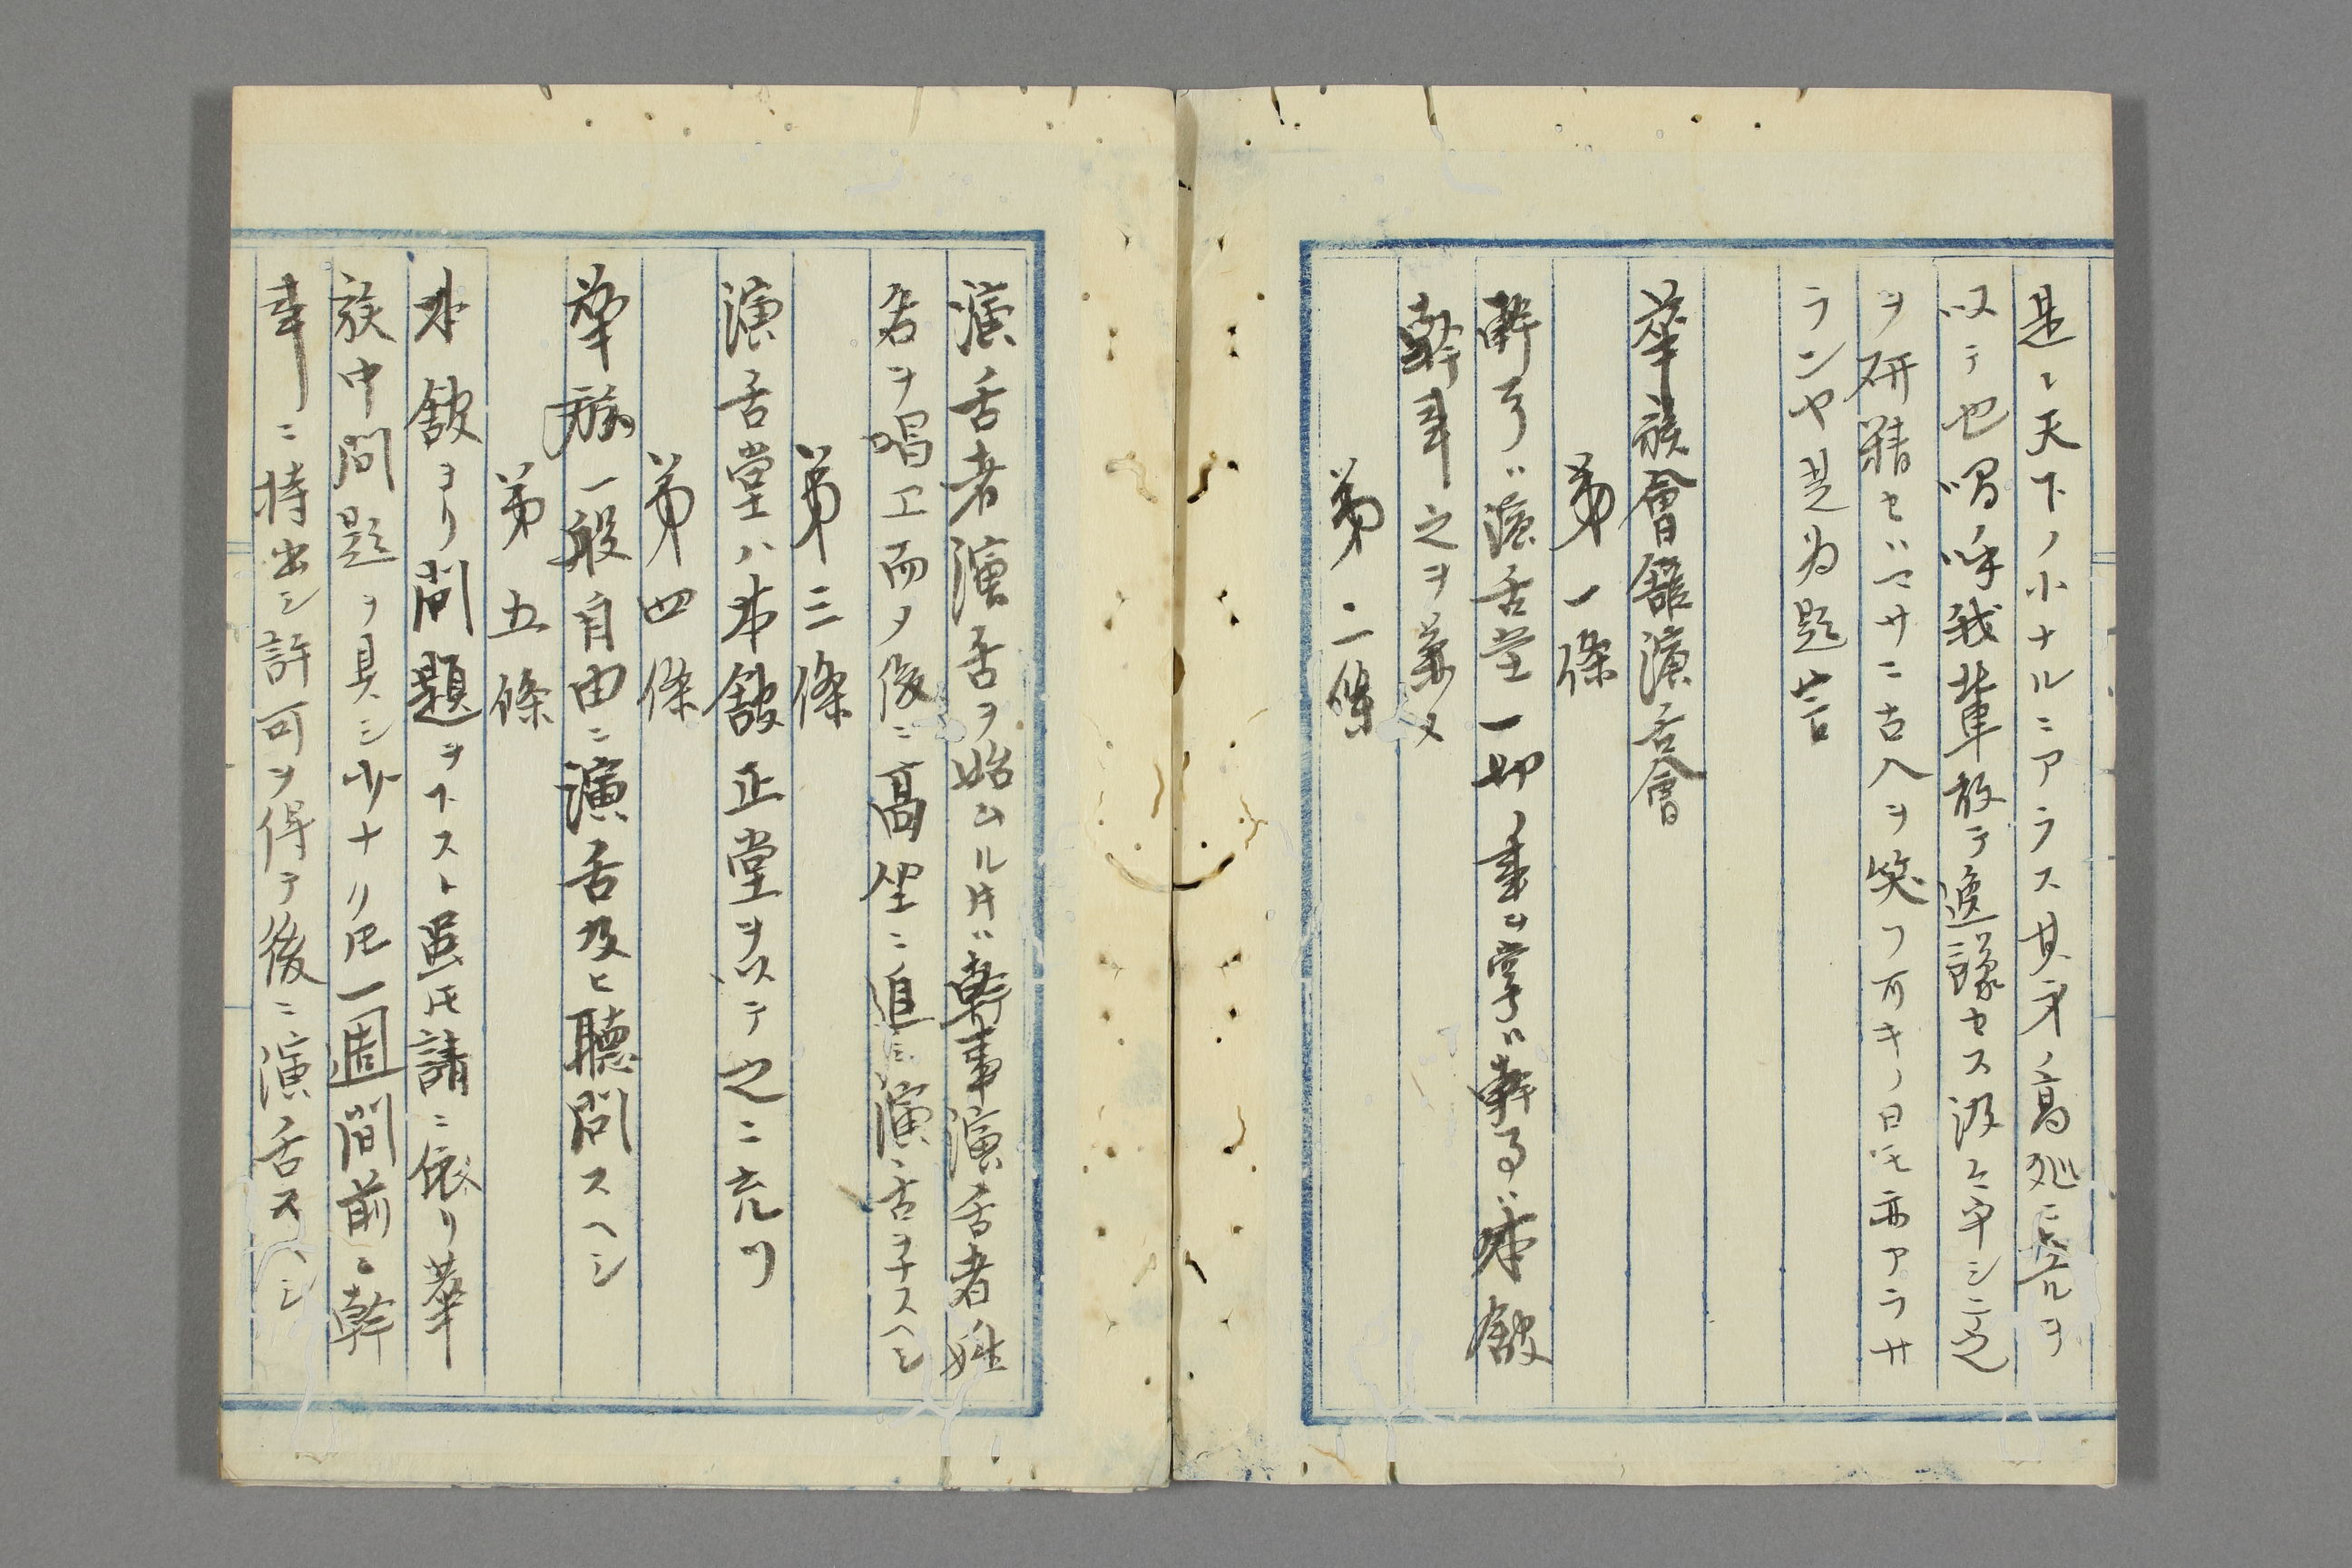 是レ天下ノ小ナルニアラス其才ノ高処ニ立ルヲ
以テ也嗚呼我輩敢テ遊豫セス汲々卒シニ之
ヲ研精セバマサニ古人ヲ笑フ可キノ日モ亦アラサ
ランヤ是為題言
華族會舘演舌會
第一條
幹事ハ演舌堂一切ノ事ヲ掌ドル幹事ハ本舘
幹事之ヲ兼ヌ
第二條
演舌者演舌ヲ始ムル片ハ幹事演舌者姓
名ヲ唱工而〆後ニ高坐ニ進ミ演舌ヲ子スヘシ
第三條
演舌堂ハ本舘正堂ヲ以テ之ニ充ツ
第四條
華族一般自由ニ演舌及ヒ聴問スヘシ
第五條
本舘ヨリ問題ヲ下スト雖𪜈請ニ依リ華
族中問題ヲ具シ少ナリ𪜈一週間前ニ幹
事ニ持出シ許可ヲ得テ後ニ演舌スヘシ